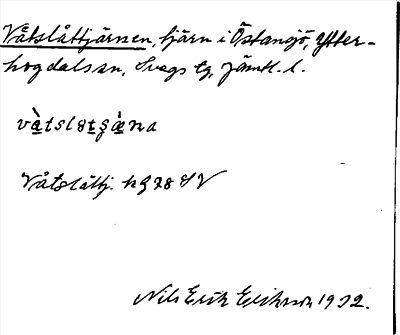 Våtslåttjärnen, tjärn i Östansjö, Ytter-
hogdals sn, Svegs tg, Jämtl. l.
Våtslåttj. hg 28 SV
Nils Erik Eriksson 1932.